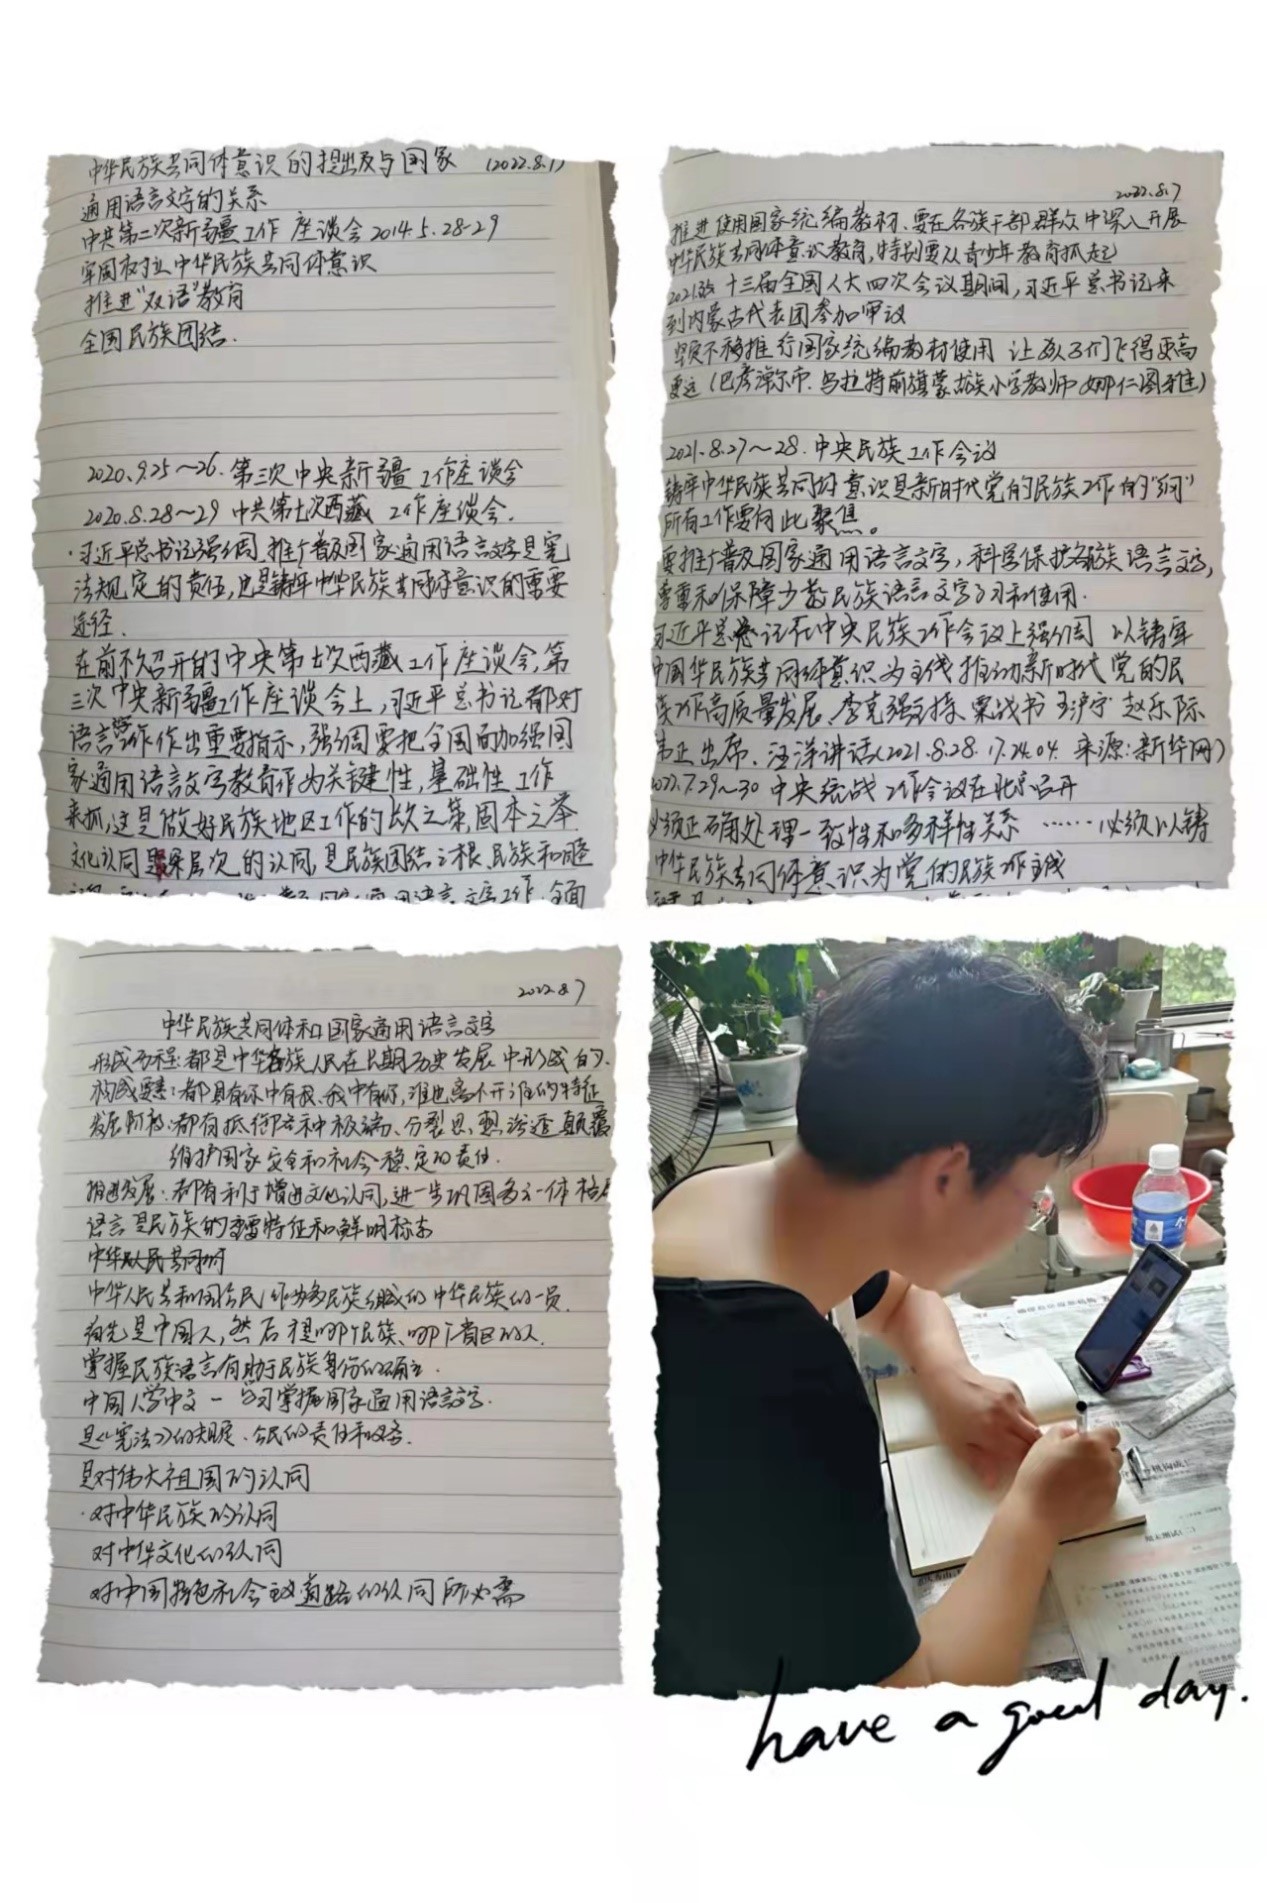 中华民族共同体意识的提出及与国家 (2022.8.1)
通用语言文字的关系
中共第二次新疆工作座谈会2014.5.28-29
牢固树立中华民族共同体意识
推进"双语"教育
全国民族团结.
2020.9.25～26.第三次中央新疆工作座谈会
2020.8.28～29 中共第七次西藏工作座谈会.
·习近平总书记强调,推广普及国家通用语言文字是宪
法规定的责任,也是铸牢中华民族共同体意识的重要
途径.
在前不久召开的中央第七次西藏工作座谈会,第
三次中央新疆工作座谈会上,习近平总书记都对
语言工作作出重要指示,强调要把全国面加强国
家通用语言文字教育作为关键性,基础性工作
来抓,这是做好民族地区工作的长久之策,固本之举
文化认同是最深层次的认同,是民族团结之根、民族和睦
用语言文字工作,全面
2022.8.7
推进使用国家统编教材、要在各族干部群众中深入开展
中华民族共同体意识教育,特别要从青少年教育抓起
2021. 十三届全国人大四次会议期间,习近平总书记来
到内蒙古代表团参加审议
坚定不移推行国家统编教材使用 让孩子们飞得更高
更远(巴彦淖尔市.乌拉特前旗蒙古族小学教师 娜仁图雅)
2021.8.27～28.中央民族工作会议
铸牢中华民族共同体意识是新时代党的民族工作的"纲"
所有工作要向此聚焦。
要推广普及国家通用语言文字,科学保护各民族语言文字,
尊重和保障少数民族语言文字学习和使用.
习近平总书记在中央民族工作会议上强调 以铸牢
中国华民族共同体意识为主线 推动新时代党的民
族工作高质量发展,李克强主持、栗战书 王沪宁 赵乐际
韩正出席、汪洋讲话(2021.8.28.17.24.04.来源:新华网)
2022.7.29～30 中央统战工作会议在北京召开
必须正确处理一致性和多样性关系 ……必须以铸
中华民族共同体意识为党的民族工作主线
2022.8.7
中华民族共同体和国家通用语言文字
形成历程:都是中华各族人民在长期历史发展中形成的.
构成要素:都具有你中有我、我中有你,谁也离不开谁的特征
发展阶段:都有抵御各种极端、分裂思想渗透颠覆
维护国家安全和社会稳定的责任.
推进发展:都有利于增进文化认同,进一步巩固多元一体格局
语言是民族的重要特征和鲜明标志
中华人民共同
中华人民共和国公民,作为多民族组成的中华民族的一员.
首先是中国人,然后才是哪个民族、哪个省区的人.
掌握民族语言有助于民族身份的确立.
中国人学中文一学习掌握国家通用语言文字.
是《宪法》的规定、公民的责任和义务.
是对伟大祖国的认同
·对中华民族的认同
对中华文化的认同
对中国特色社会主义道路的认同所必需
have a good day.